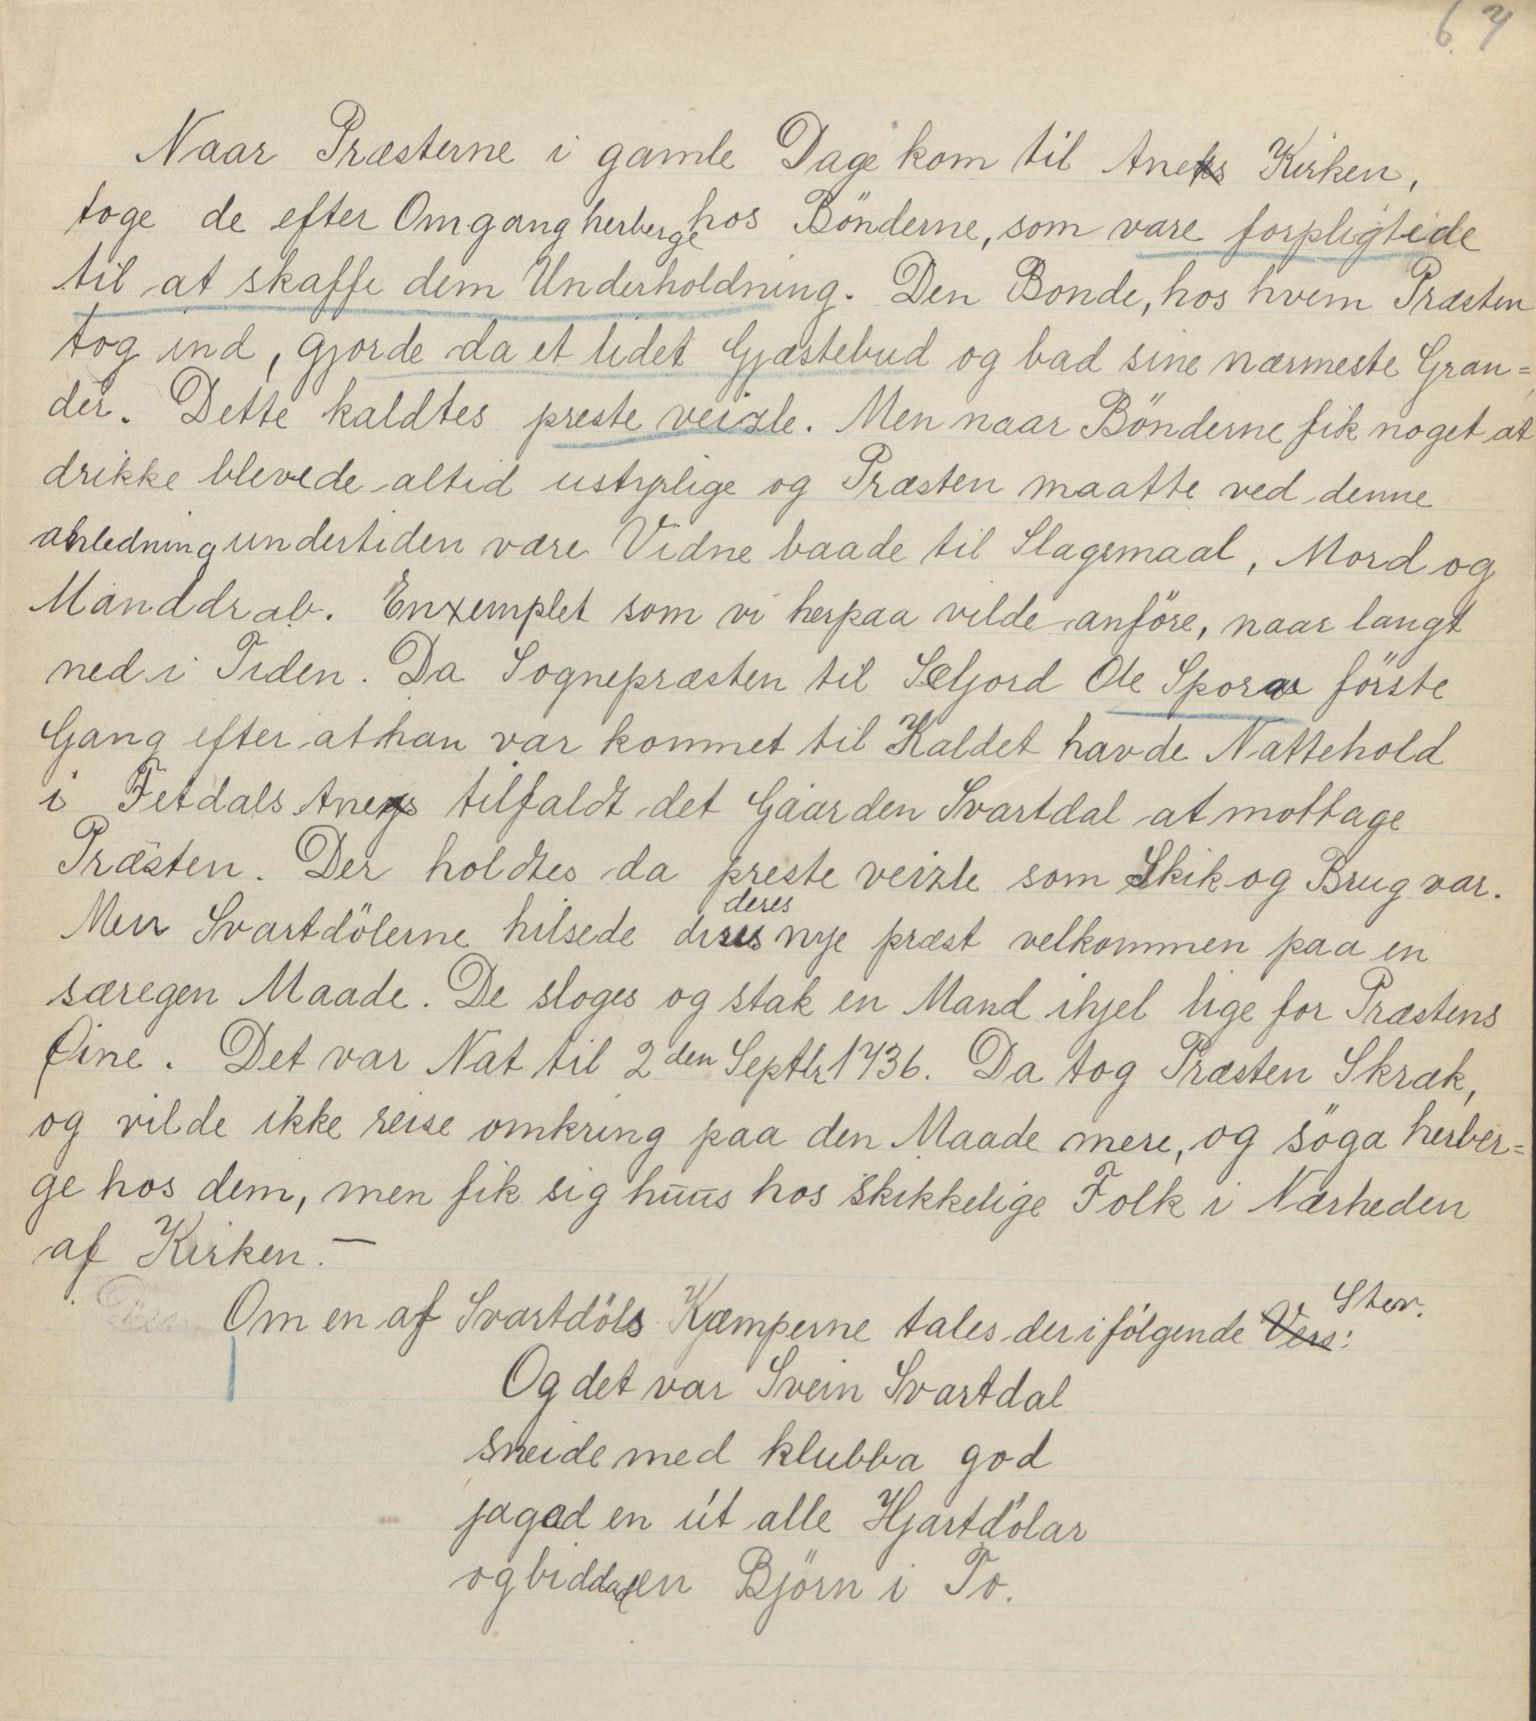 67
Naar Præsterne i gamle Dage kom til Aneks Kirken,
toge de efter Omgang herberge hos Bönderne, som vare forpligtede
til at skaffe dem Underholdning. Den Bonde, hos hvem Præsten
tog ind, gjorde da et lidet Gjæstebud og bad sine nærmeste Gran=
der. Dette kaldtes preste veizle. Men naar Bönderne fik noget at
drikke blevede altid ustyrlige og Præsten maatte ved denne
anledning undertiden være Vidne baade til Slagsmaal, Mord og
Manddrab. Enxemplet som vi herpaa vilde anföre, naar langt
ned i Tiden. Da Sognepræsten til Seljord Ole Sporas förste
Gang efter at han var kommet til Kaldet havde Nattehold
i Fetdals Anegs tilfaldt det Gaarden Svartdal at mottage
Præsten. Der holdtes da preste veizle som Skik og Brug var.
Men Svartdölerne hilsede deres nye præst velkommen paa en
særegen Maade. De sloges og stak en Mand ihjel lige for Præstens
Øine. Det var Nat til 2den Septbr 1736. Da tog Præsten Skræk,
og vilde ikke reise omkring paa den Maade mere, og söga herber=
ge hos dem, men fik sig huus hos skikkelige Folk i Nærheden
af Kirken. —
Om en af Svartdöls Kæmperne tales der i følgende Vers: Stev.
Og det var Svein Svartdal
sneide med klubba god
jagad en út alle Hjartdölar
og biddad en Björn i To.